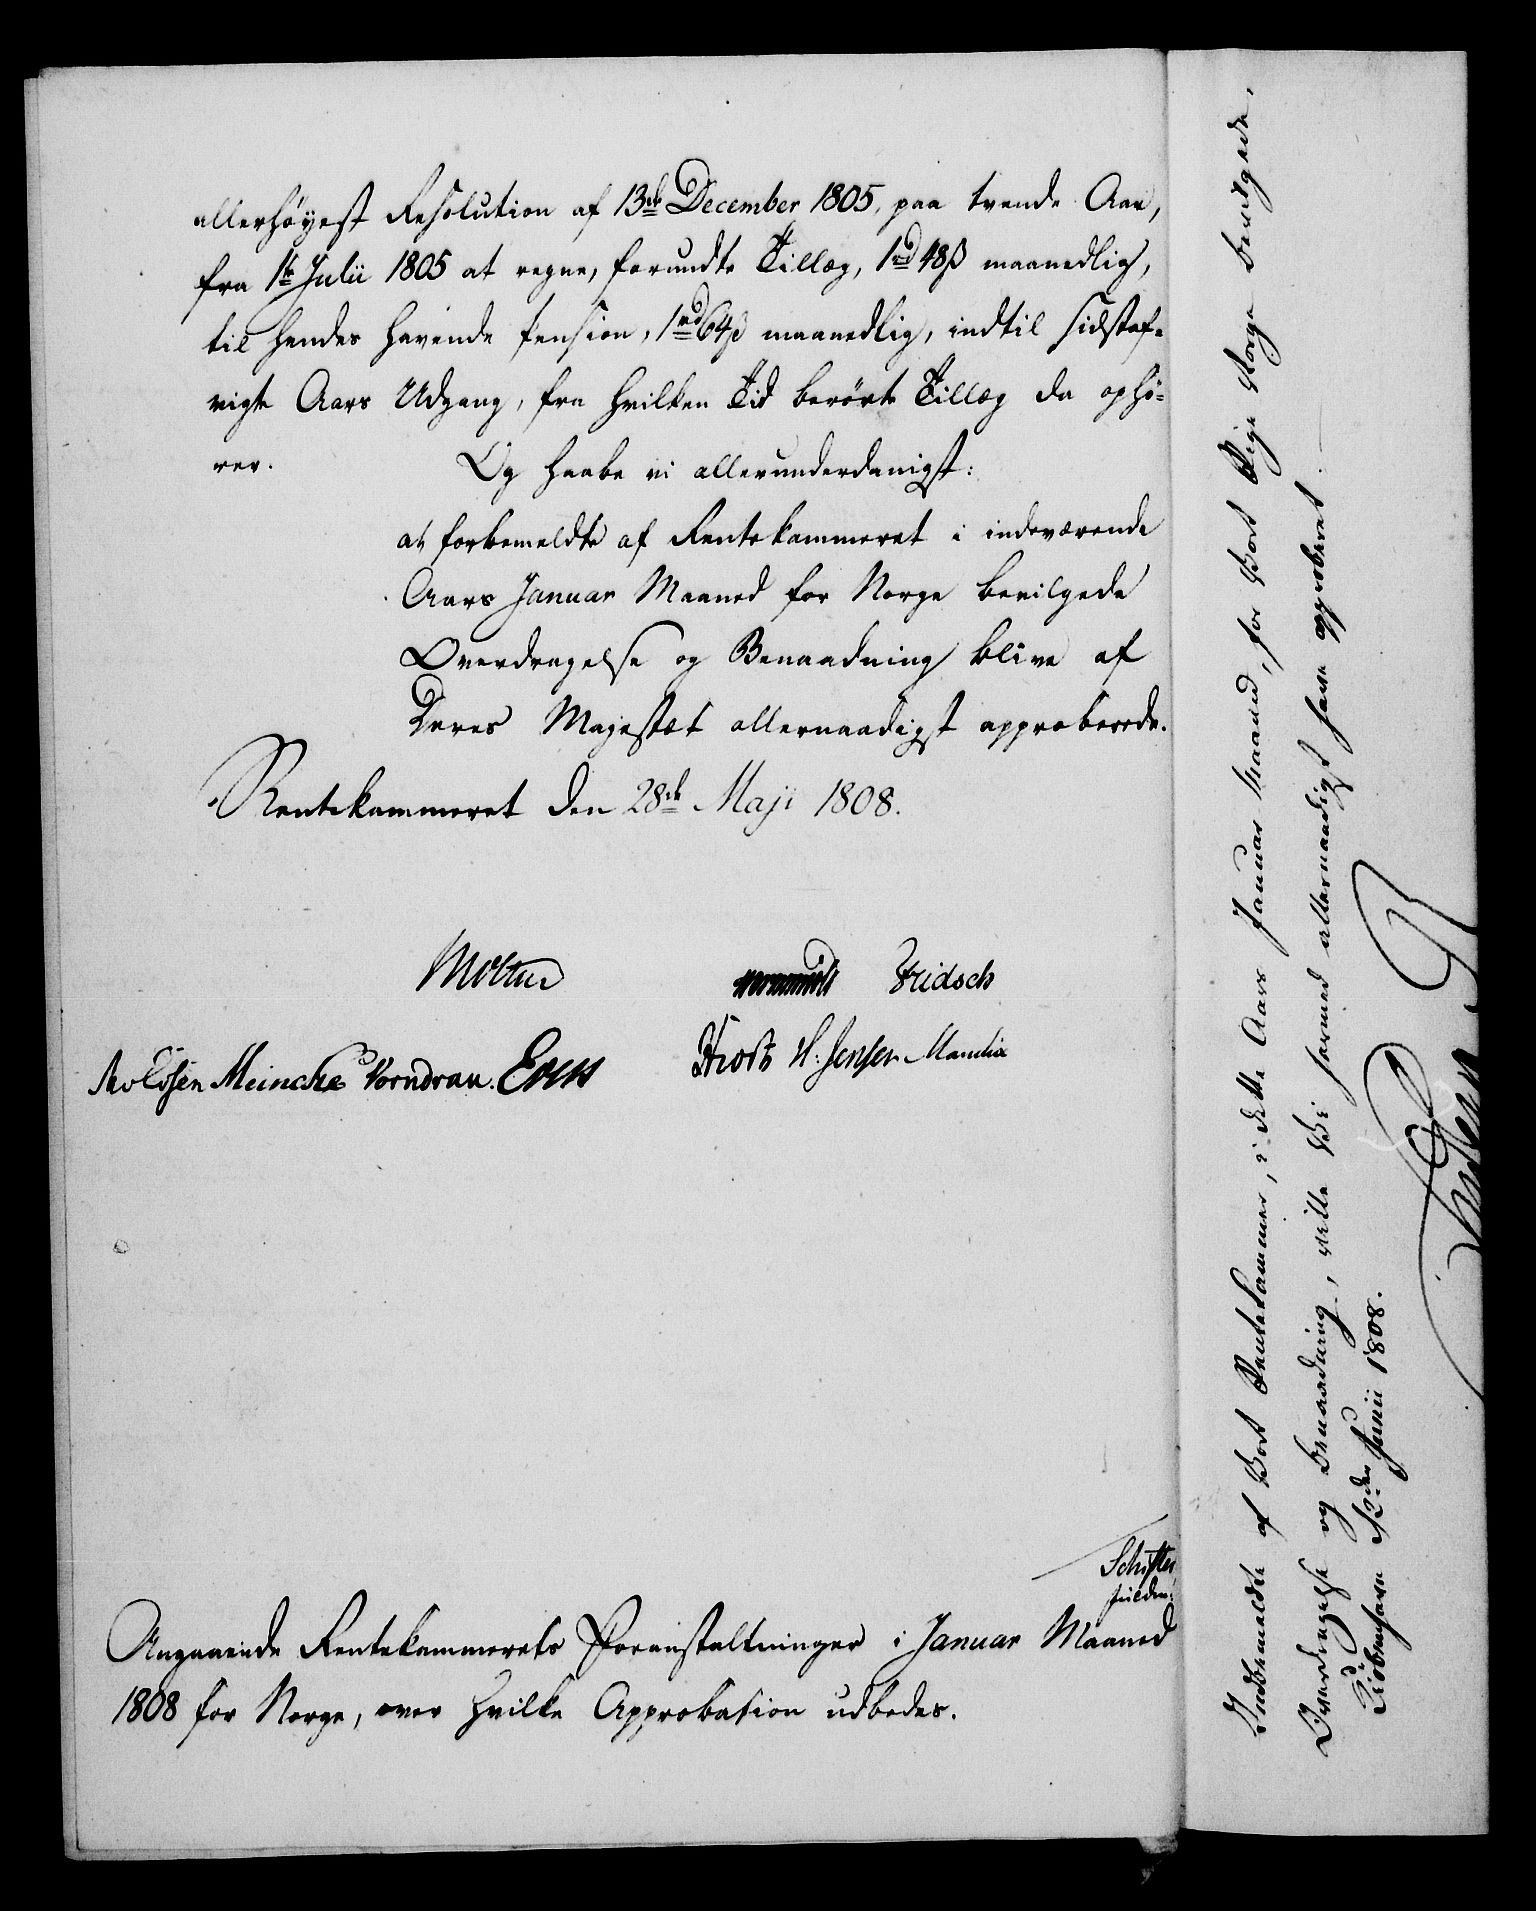 allerhøyest Resolution af 13de December 1805, paa trende Aar,
fra 1te Julii 1805 at regne, forundte Tillæg, 1rd 48ß maanedlig,
til hendes havende Pension, 1rd 64ß maanedlig, indtil sidstaf-
vigte Aars Udgang, fra hvilken Tid berørte Tillæg da ophö-
rer.
Og haabe vi allerunderdanigst:
at forbemeldte af Rentekammeret i indeværende
Aars Januar Maaned for Norge bevilgede
Overdragelse og Benaadning blive af
Deres Majestæt allernaadigst approberede.
Rentekammeret den 28de Maji 1808.
Moltke
Fridsch
Knudsen Meincke Vorndran.
Hiort H: Jensen Manthe
Schifter
Angaaende Rentekammerets Foranstaltninger i Januar Maaned
1808 for Norge, over hvilke Approbation udbedes.
Indbemeldte af Vort Rentekammer, i dette Aars Januar Maaned, for Vort Rige Norge bevilgede,
Overdragelse og Benaadning, ville Vi hermed allernaadigst have approberet.
Kiøbenhavn d. 2den Junii 1808.
Frederik R